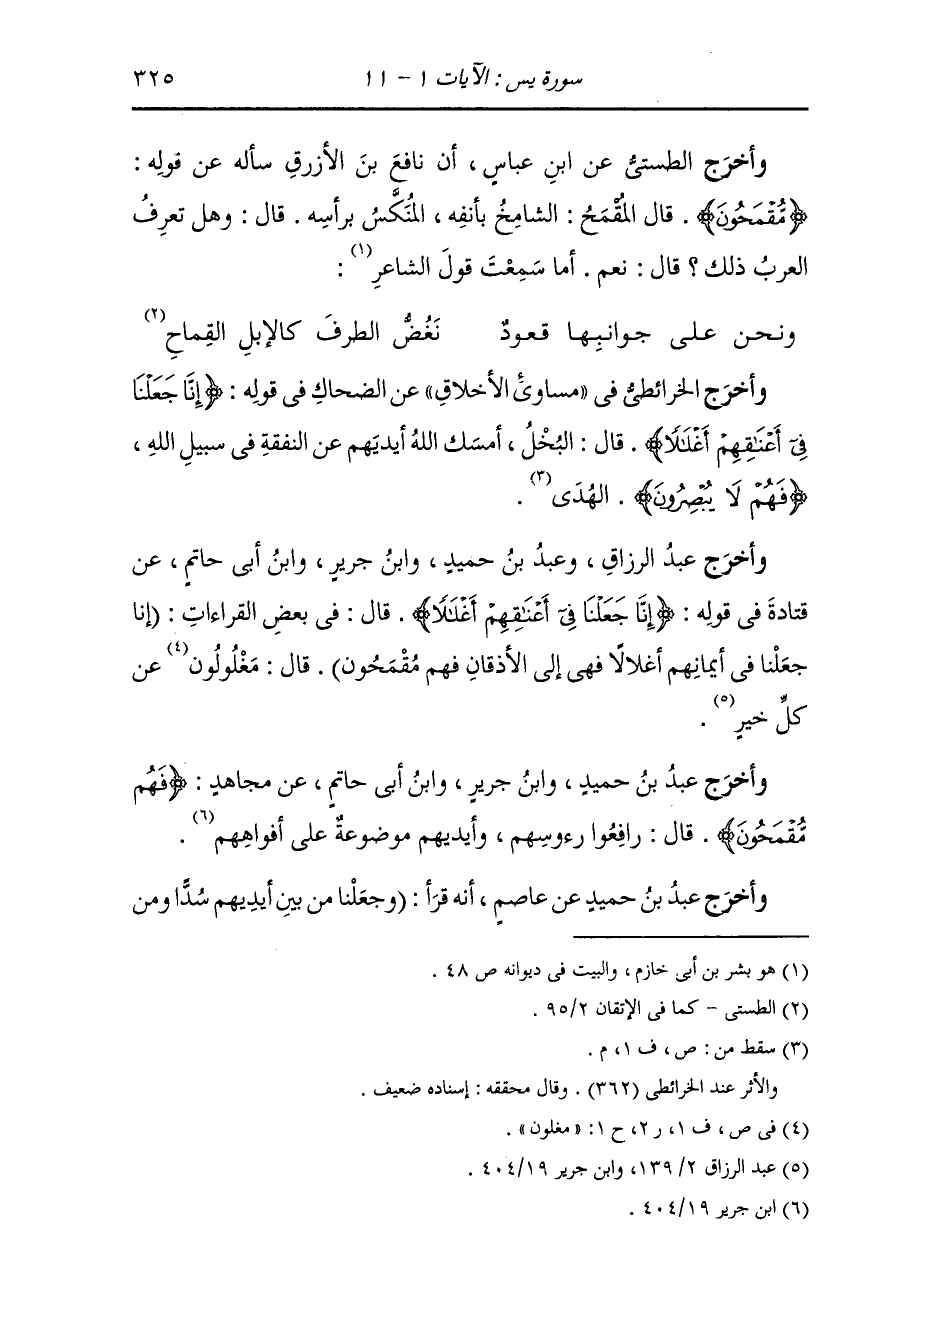 سورة يس : الآيات ١ - ١١ ٣٢٥
وأخرَج الطستىُّ عن ابنِ عباسٍ ، أن نافعَ بنَ الأزرقِ سأله عن قولِه :
﴿مُّقْمَحُونَ﴾ . قال المُقْمَحُ : الشامِخُ بأنفِه ، المُنَكَّسُ برأسِه . قال : وهل تعرِفُ
العربُ ذلك ؟ قال : نعم . أما سَمِعْتَ قولَ الشاعرِ(١) :
ونحن على جوانبِها قعودٌ نَغُضُّ الطرفَ كالإبلِ القِماحِ(٢)
وأخرَج الخرائطىُّ فى «مساوئِ الأخلاقِ» عن الضحاكِ فى قولِه : ﴿إِنَّا جَعَلْنَا
فِىٓ أَعْنَٰقِهِمْ أَغْلَٰلًا﴾ . قال : البُخْلُ ، أمسَك اللهُ أيديَهم عن النفقةِ فى سبيلِ اللهِ ،
﴿فَهُمْ لَا يُبْصِرُونَ﴾ . الهُدَى(٣) .
وأخرَج عبدُ الرزاقِ ، وعبدُ بنُ حميدٍ ، وابنُ جريرٍ ، وابنُ أبى حاتمٍ ، عن
قتادةَ فى قولِه : ﴿إِنَّا جَعَلْنَا فِىٓ أَعْنَٰقِهِمْ أَغْلَٰلًا﴾ . قال : فى بعضِ القراءاتِ : (إنا
جعَلْنا فى أيمانِهم أغلالًا فهى إلى الأذقانِ فهم مُقْمَحُون) . قال : مَغْلُولُون(٤) عن
كلِّ خيرٍ(٥) .
وأخرَج عبدُ بنُ حميدٍ ، وابنُ جريرٍ ، وابنُ أبى حاتمٍ ، عن مجاهدٍ : ﴿فَهُم
مُّقْمَحُونَ﴾ . قال : رافِعُوا رءوسِهم ، وأيديهم موضوعةٌ على أفواهِهم(٦) .
وأخرَج عبدُ بنُ حميدٍ عن عاصمٍ ، أنه قرَأ : (وجعَلْنا من بينِ أيدِيهم سُدًّا ومن
(١) هو بشر بن أبى خازم ، والبيت فى ديوانه ص ٤٨ .
(٢) الطستى - كما فى الإتقان ٩٥/٢ .
(٣) سقط من : ص ، ف ١ ، م .
والأثر عند الخرائطى (٣٦٢) . وقال محققه : إسناده ضعيف .
(٤) فى ص ، ف ١ ، ر ٢ ، ح ١ : « مغلون » .
(٥) عبد الرزاق ١٣٩/٢ ، وابن جرير ٤٠٤/١٩ .
(٦) ابن جرير ٤٠٤/١٩ .